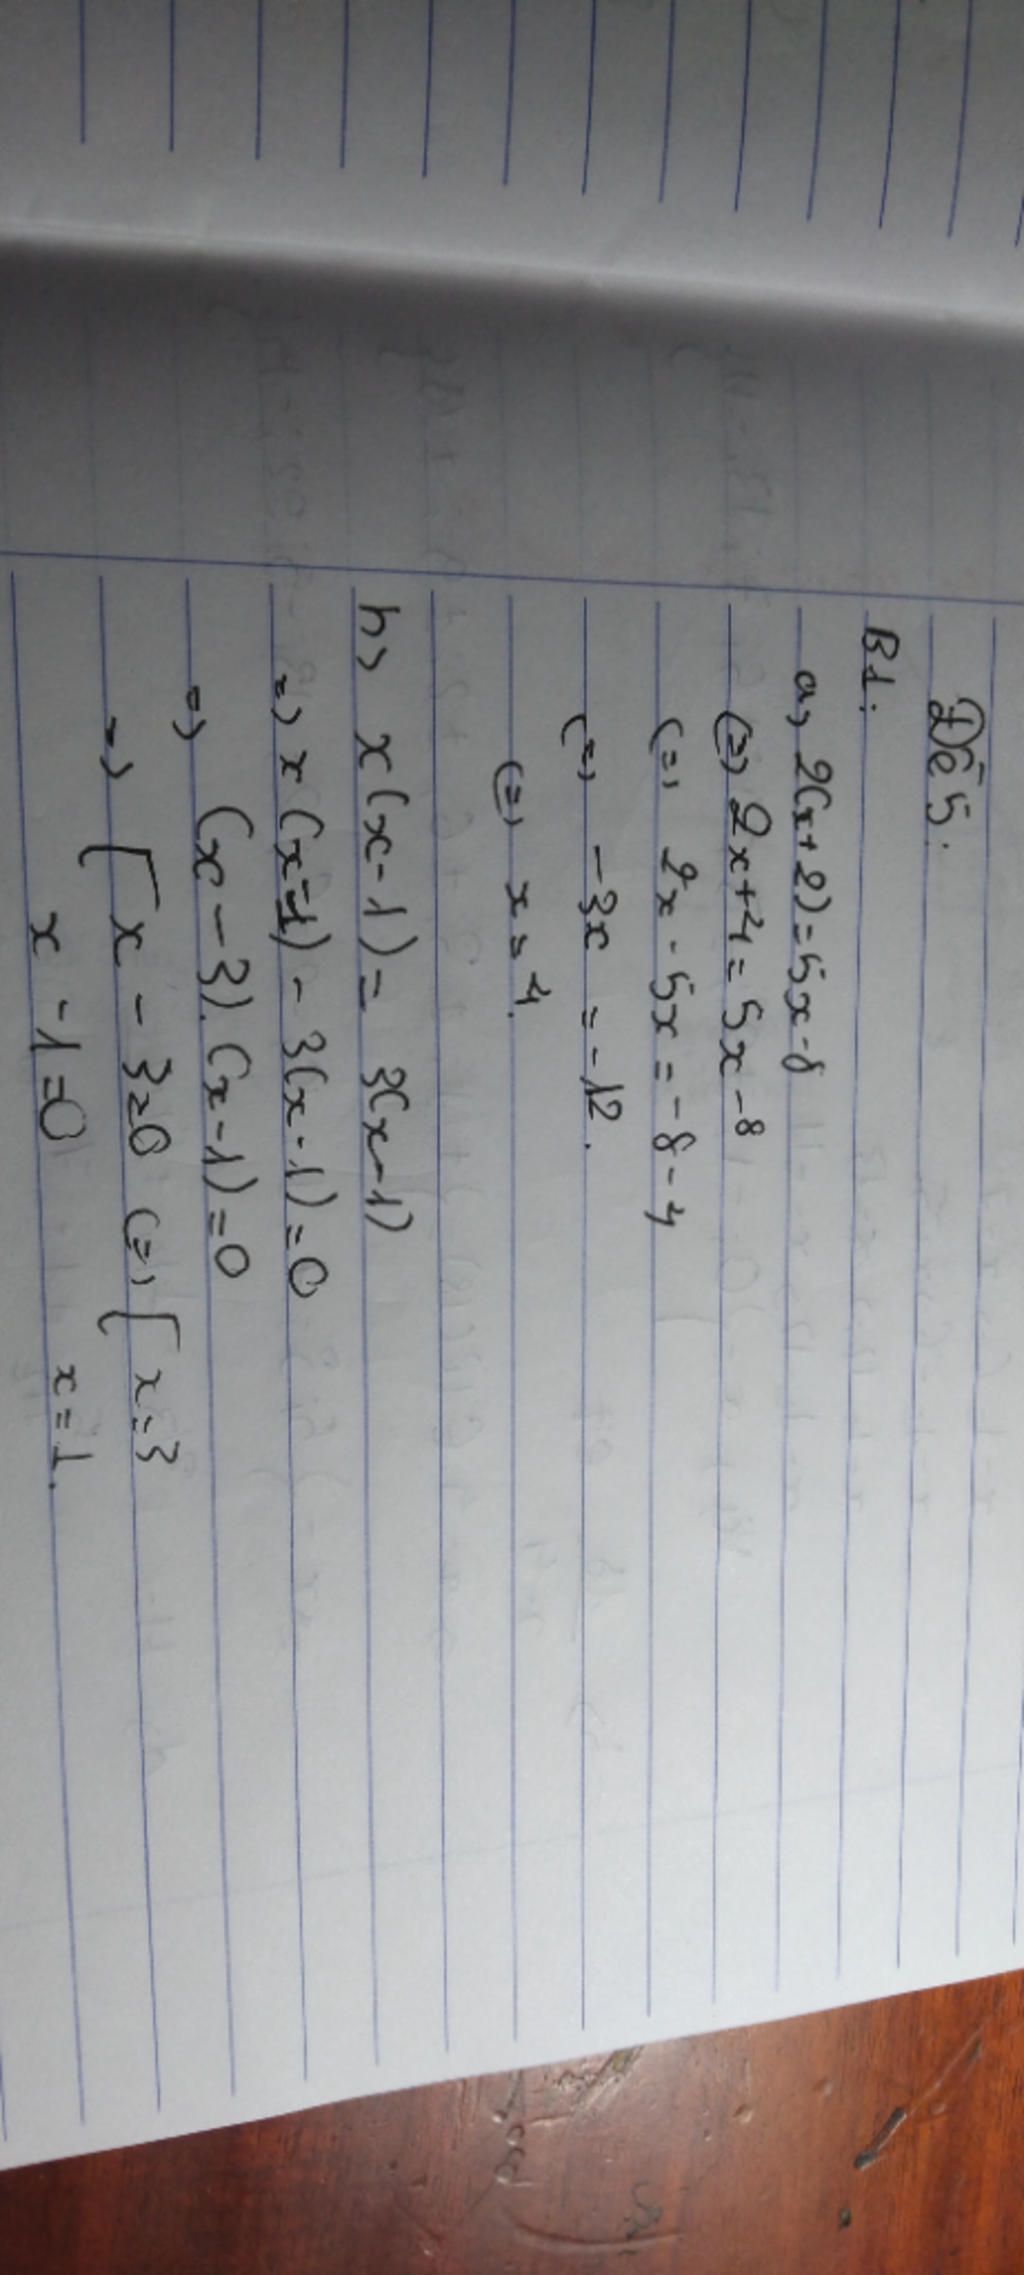 Đề 5.
B1:
a, 2(x+2)=5x-8
(=) 2x+4=5x-8
(=) 2x-5x=-8-4
(=) -3x=-12.
(=) x=4.
b) x(x-1)=3(x-1)
=) x(x-1)-3(x-1)=0
=) (x-3).(x-1)=0
=) [x-3=0 (=) [x=3
x-1=0 x=1.